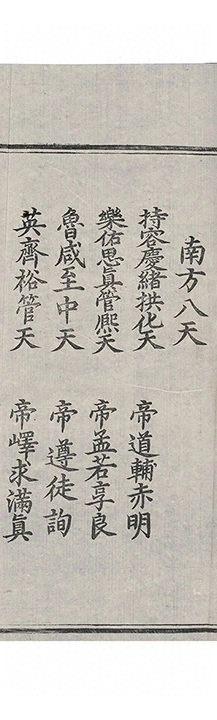 南方八天
持容慶緒拱化天　帝道輔赤明
樂佑思真管熈天　帝孟若享良
魯咸至中天　帝遵徒詢
英齊裕管天　帝嶧求滿真